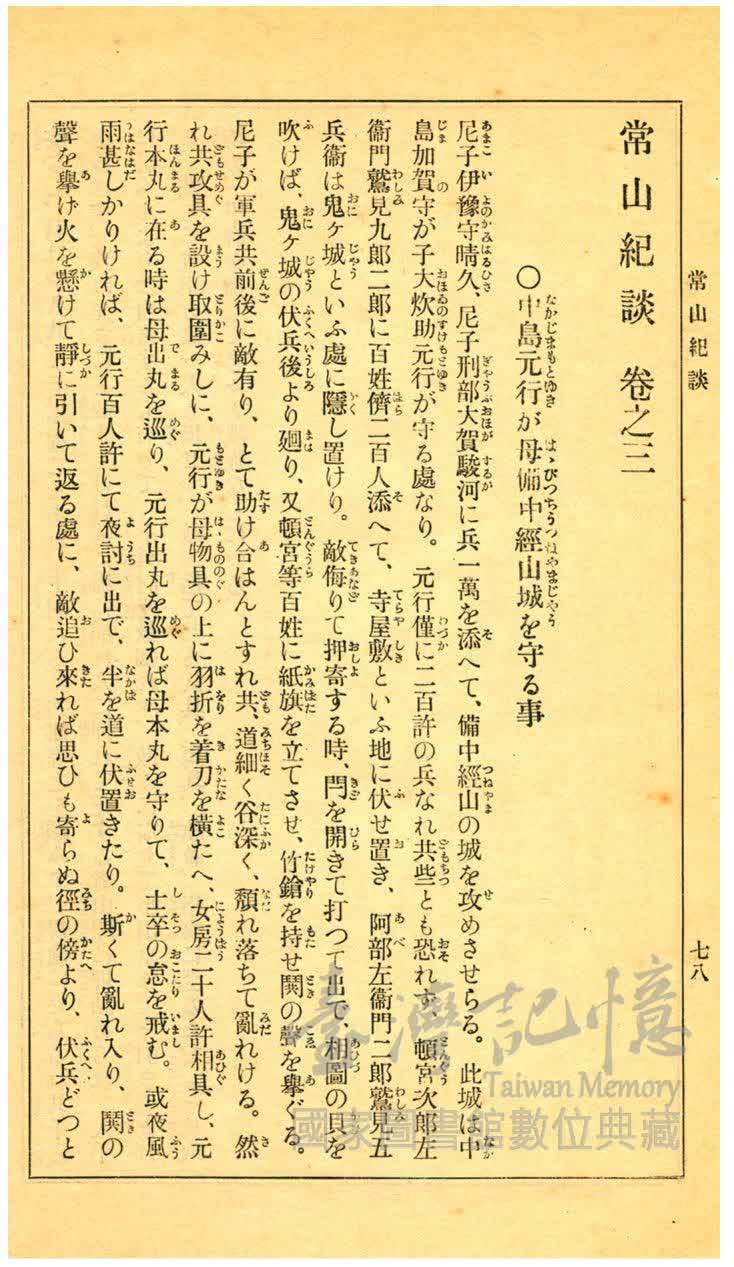 常山紀談
七八
常山紀談 卷之三
○中島元行が母備中經山城を守る事
尼子伊豫守晴久、尼子刑部大賀駿河に兵一萬を添へて、備中經山の城を攻めさせらる。此城は中
島加賀守が子大炊助元行が守る處なり。元行僅に二百許の兵なれ共些とも恐れず、頓宮次郎左
衞門鷲見九郎二郎に百姓儕二百人添へて、寺屋敷といふ地に伏せ置き、阿部左衞門二郎鷲見五
兵衞は鬼ヶ城といふ處に隱し置けり。敵侮りて押寄する時、閂を開きて打つて出で、相圖の貝を
吹けば、鬼ヶ城の伏兵後より廻り、又頓宮等百姓に紙旗を立てさせ、竹鎗を持せ鬨の聲を擧ぐる。
尼子が軍兵共前後に敵有り、とて助け合はんとすれ共、道細く谷深く、頽れ落ちて亂れける。然
れ共攻具を設け取圍みしに、元行が母物具の上に羽折を着刀を橫たへ、女房二十人許相具し、元
行本丸に在る時は母出丸を巡り、元行出丸を巡れば母本丸を守りて、士卒の怠を戒む。或夜風
雨甚しかりければ、元行百人許にて夜討に出で、半を道に伏置きたり。斯くて亂れ入り、鬨の
聲を擧け火を懸けて靜に引いて返る處に、敵追ひ來れば思ひも寄らぬ徑の傍より、伏兵どつと
臺灣記憶
Taiwan Memory
國家圖書館數位典藏